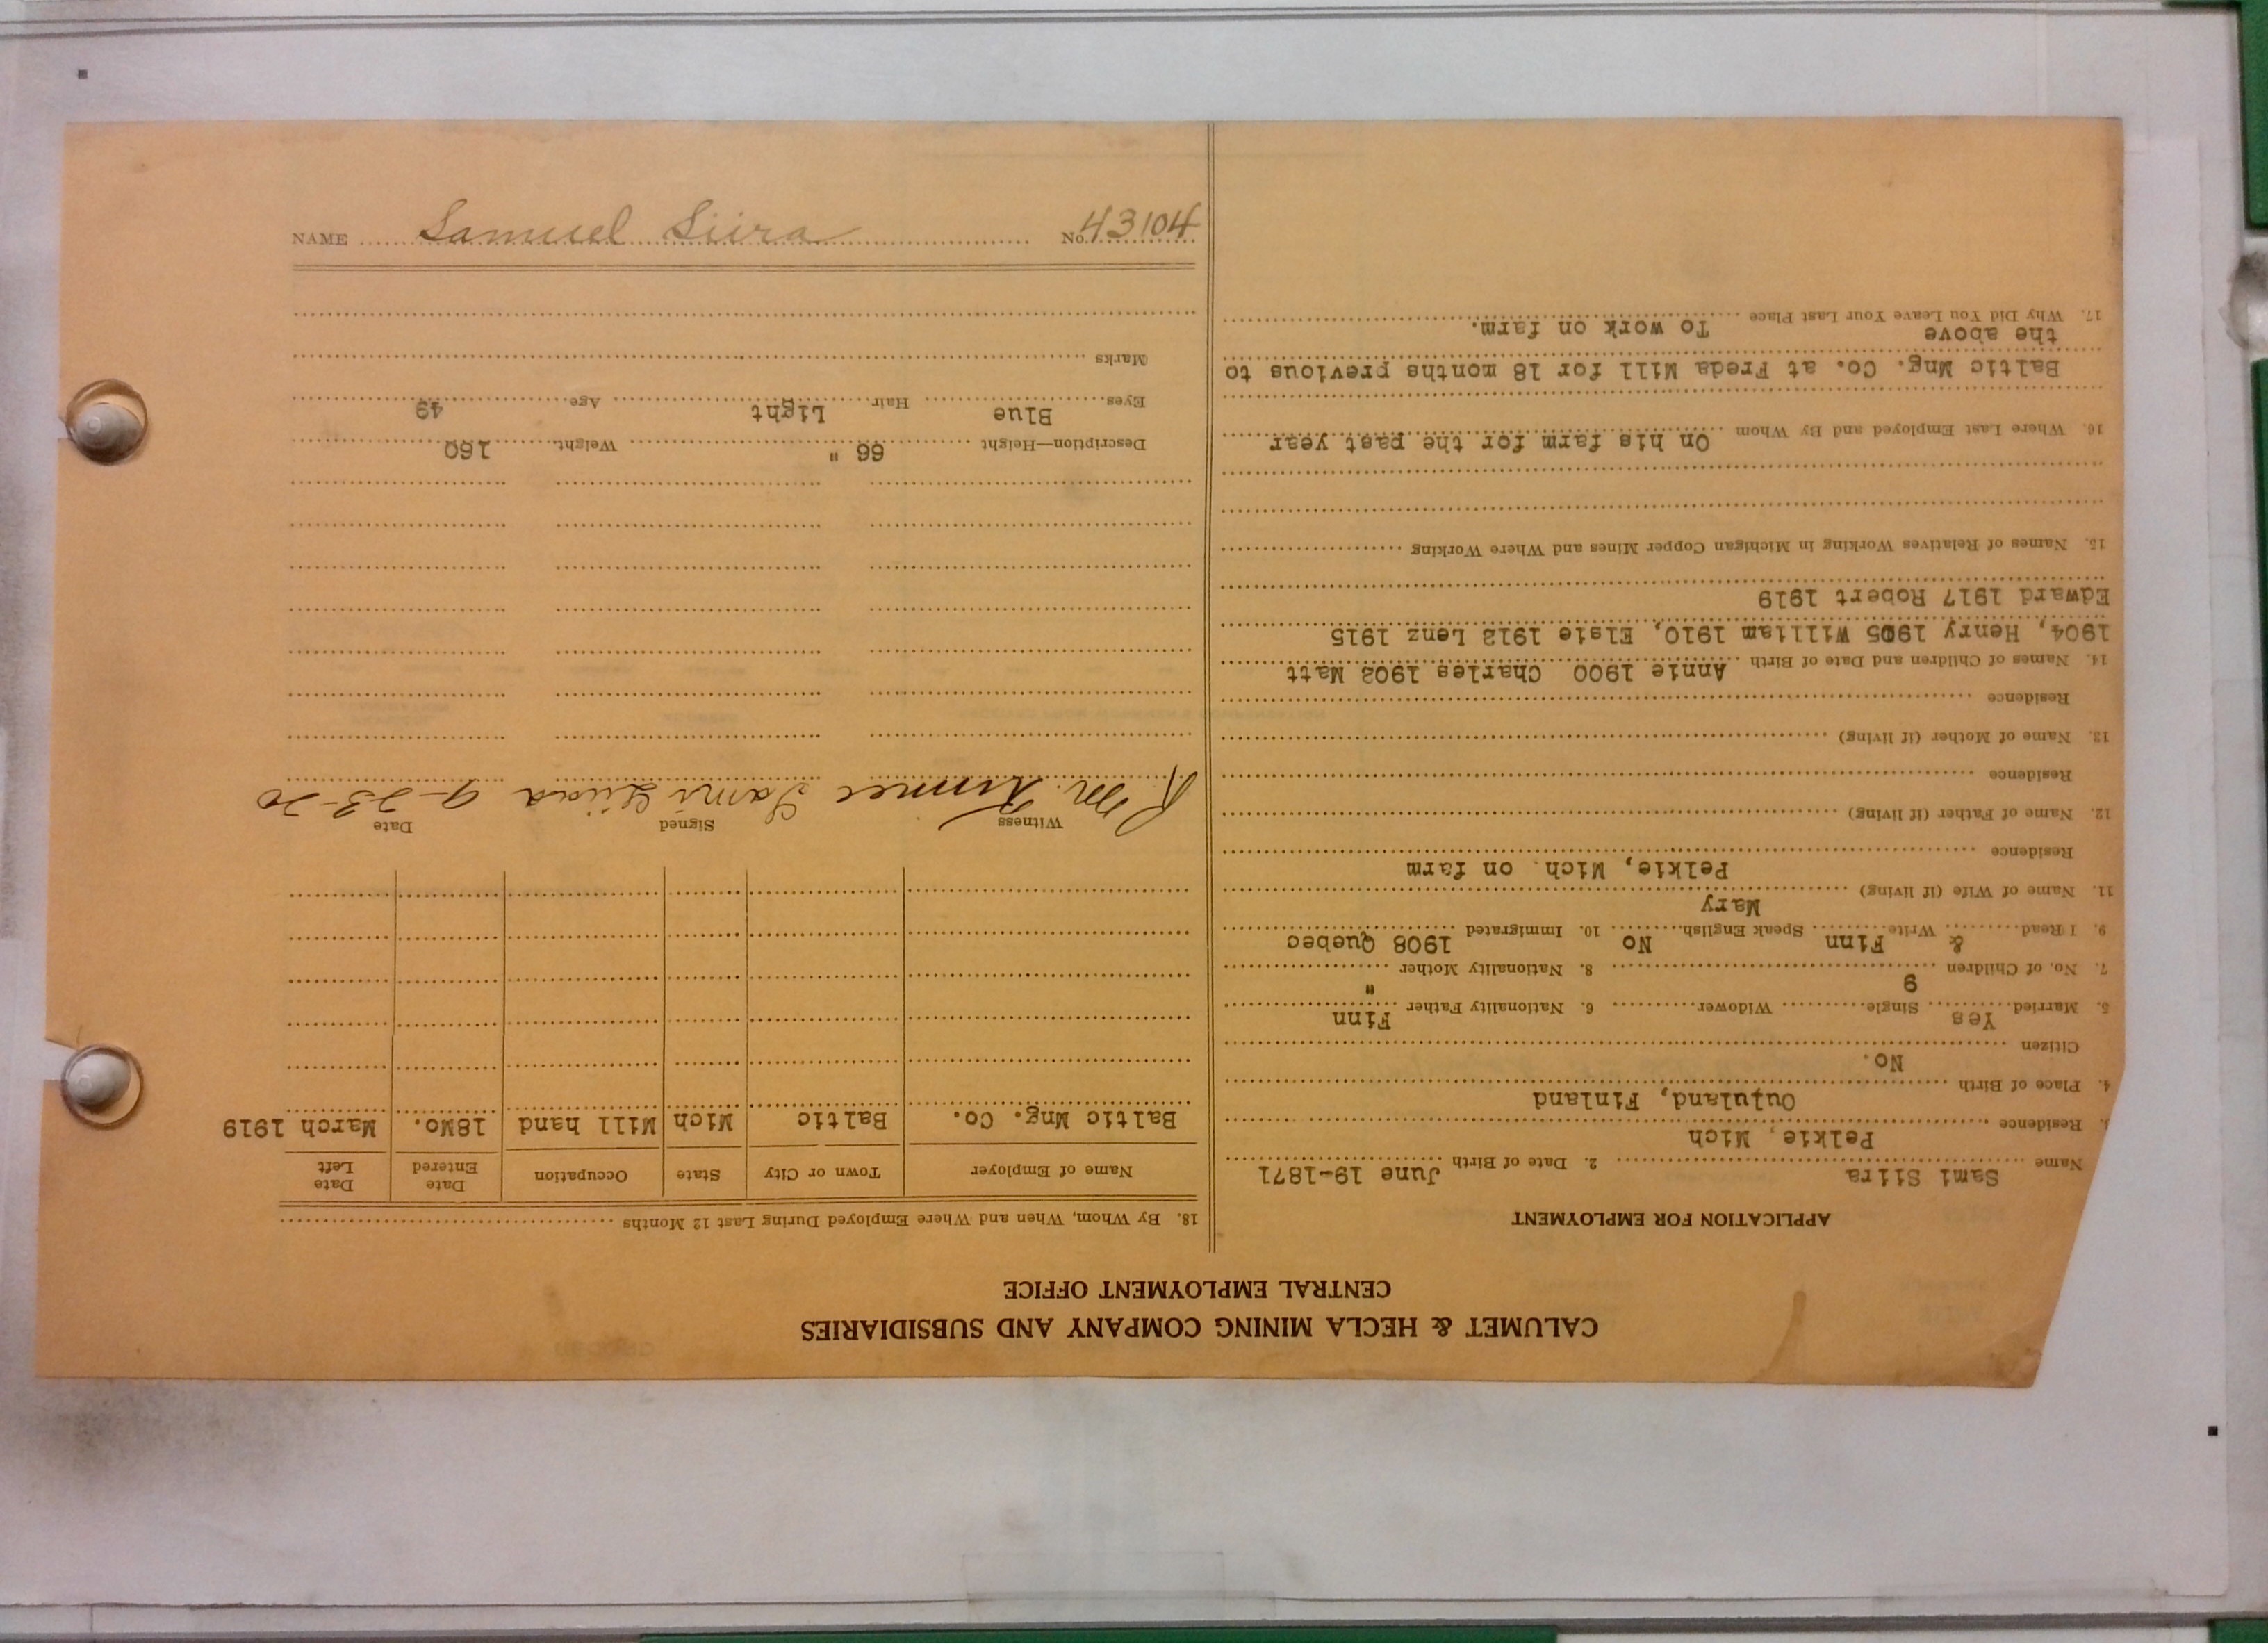 CALUMET & HECLA MINING COMPANY AND SUBSIDIARIES
CENTRAL EMPLOYMENT OFFICE
APPLICATION FOR EMPLOYMENT
Name Sami Siira 2. Date of Birth June 19-1871
Residence Pelkie, Mich
4. Place of Birth Oujuland, Finland
Citizen No.
5. Married Yes Single Widower 6. Nationality Father Finn
7. No. of Children 9 8. Nationality Mother "
9. I Read & Write Finn Speak English No 10. Immigrated 1908 Quebec
11. Name of Wife (if living) Mary
Residence Pelkie, Mich. on farm
12. Name of Father (if living)
Residence
13. Name of Mother (if living)
Residence
14. Names of Children and Date of Birth Annie 1900 Charles 1902 Matt
1904, Henry 1905 William 1910, Elsie 1912 Lenz 1915
Edward 1917 Robert 1919
15. Names of Relatives Working in Michigan Copper Mines and Where Working
16. Where Last Employed and By Whom On his farm for the past year
Baltic Mng. Co. at Freda Mill for 18 months previous to
the above To work on farm.
17. Why Did You Leave Your Last Place
18. By Whom, When and Where Employed During Last 12 Months
Name of Employer Town or City State Occupation Date Entered Date Left
Baltic Mng. Co. Baltic Mich Mill hand 18Mo. March 1919
Witness Signed Date
R M. Sami Siira 9-23-20
Description—Height 66 " Weight 160
Eyes Blue Hair Light Age 49
Marks
NAME Samuel Siira No. 43104